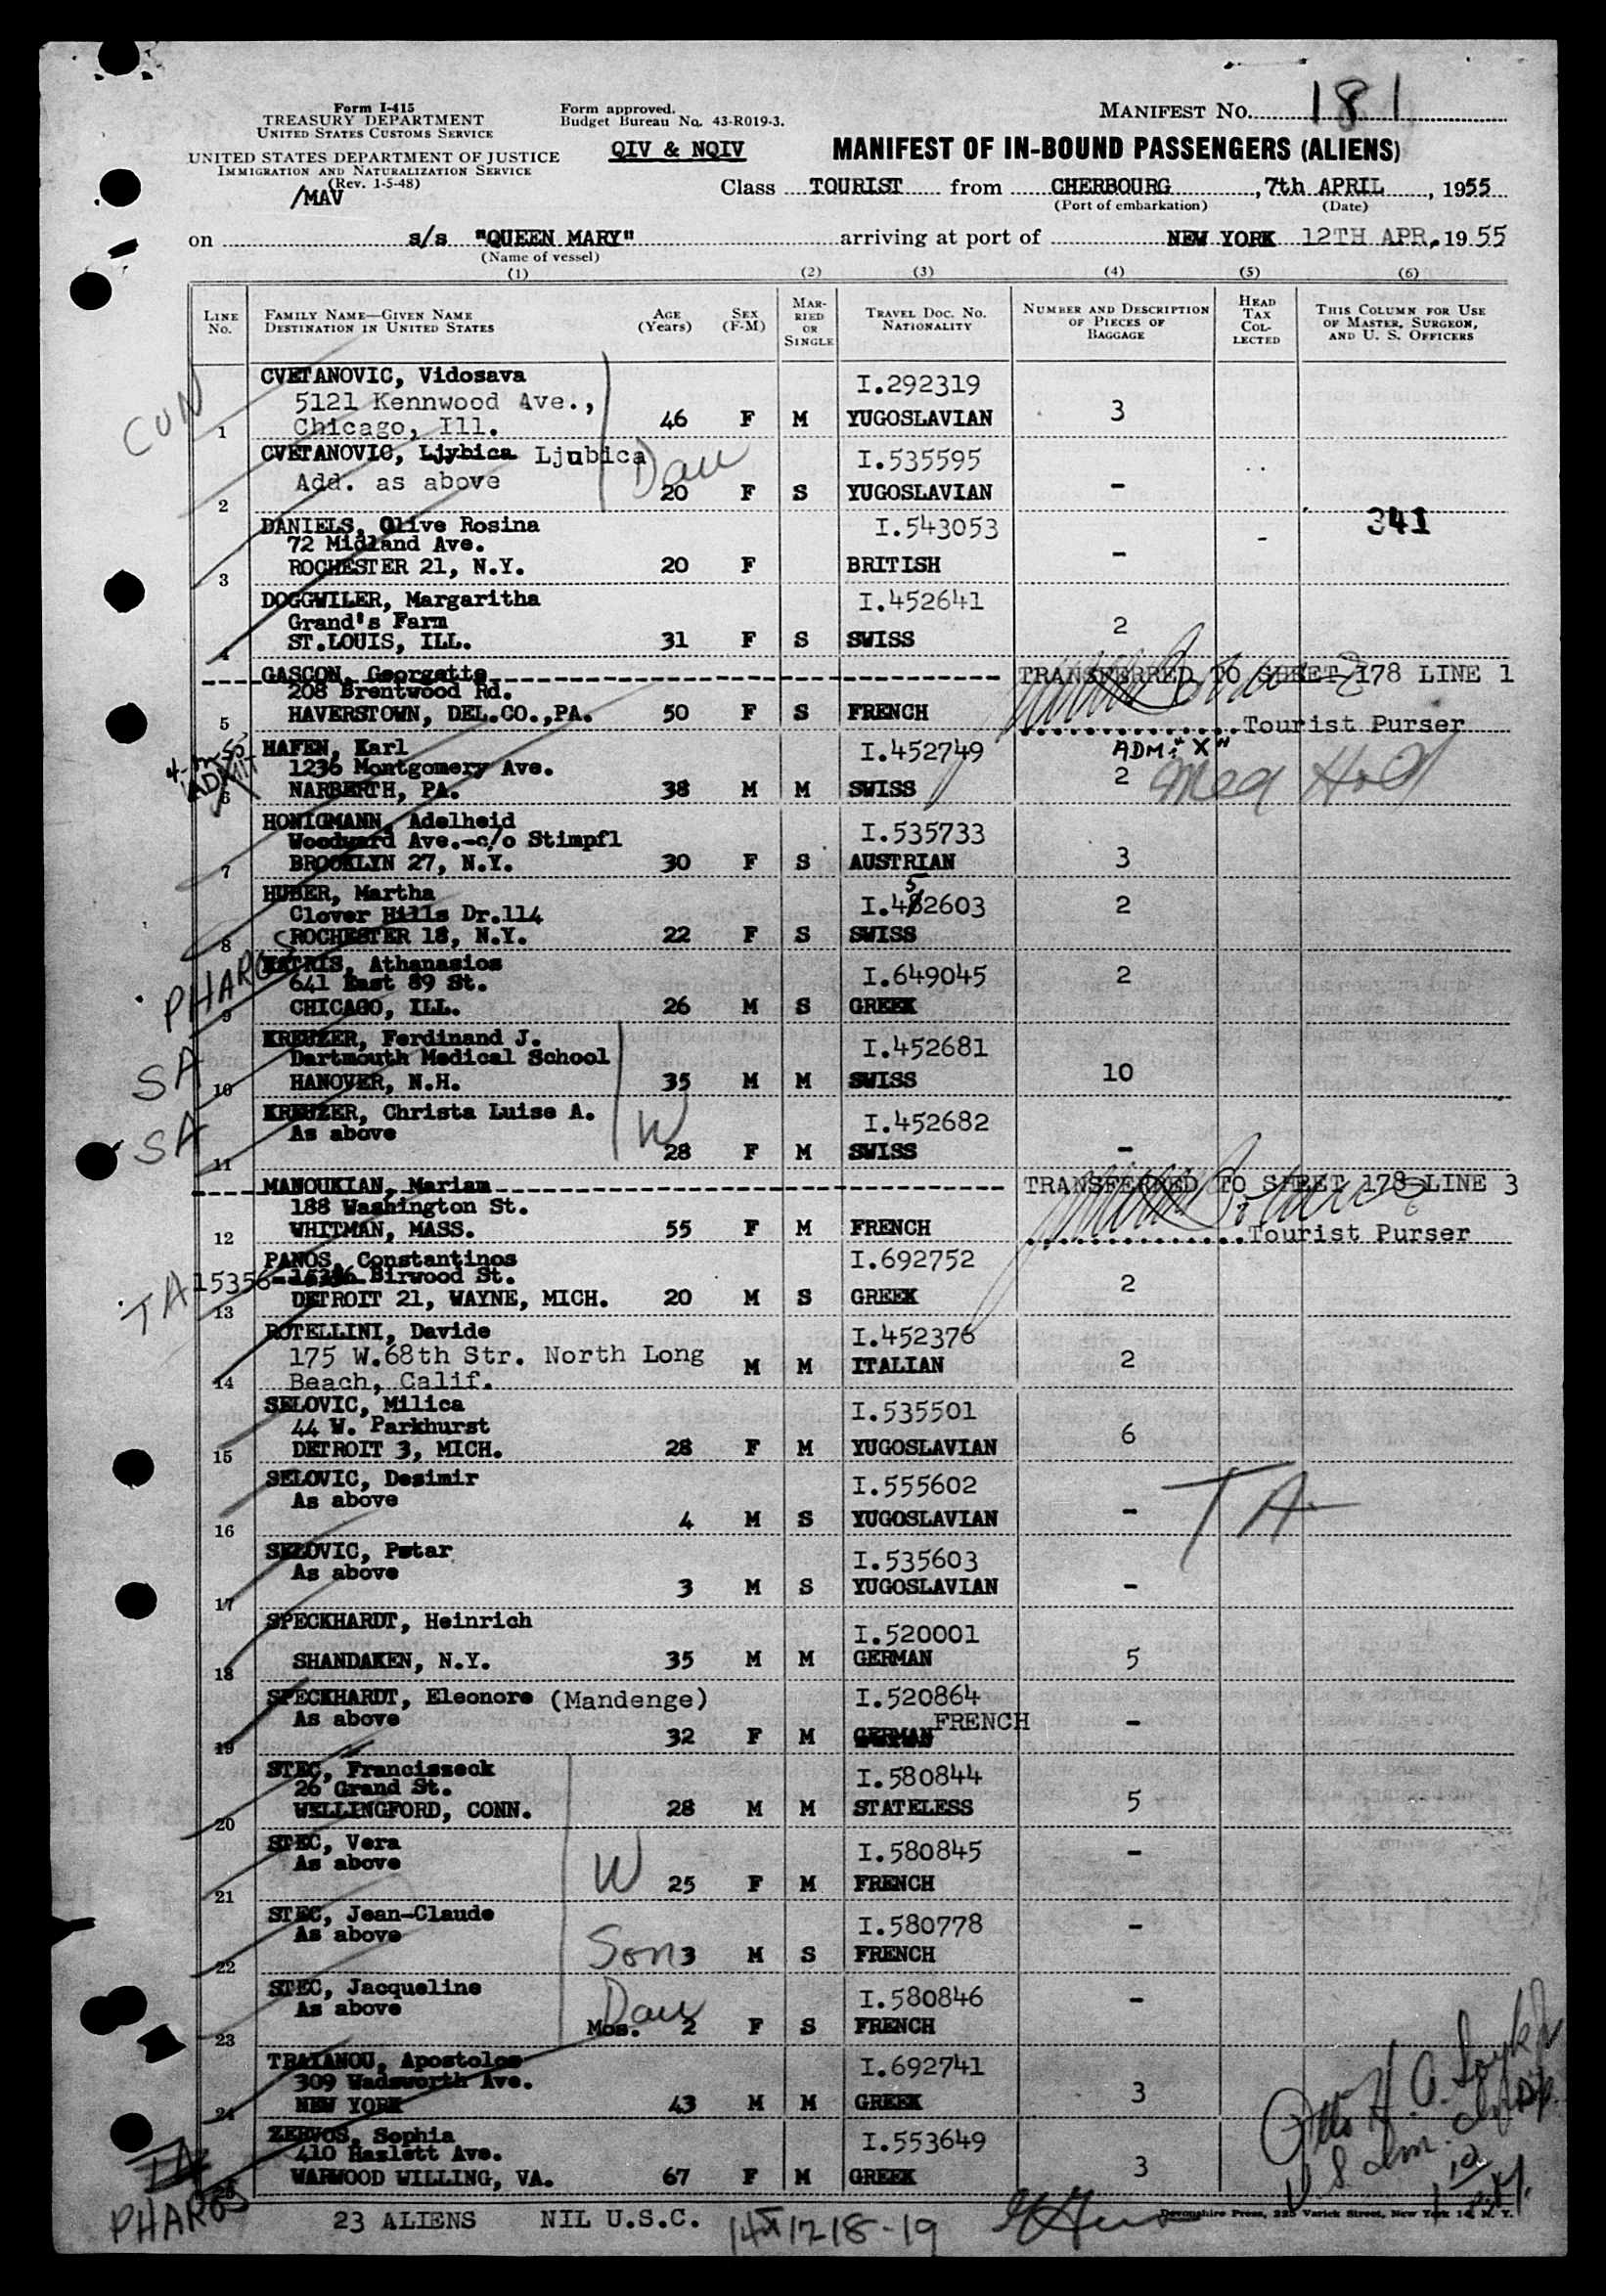 Form I-415
TREASURY DEPARTMENT
UNITED STATES CUSTOMS SERVICE
UNITED STATES DEPARTMENT OF JUSTICE
IMMIGRATION AND NATURALIZATION SERVICE
(Rev. 1-5-48)
/MAV
Form approved.
Budget Bureau No. 43-R019-3.
QIV & NQIV
MANIFEST NO. 181
MANIFEST OF IN-BOUND PASSENGERS (ALIENS)
Class TOURIST from CHERBOURG, 7th APRIL, 1955
(Port of embarkation) (Date)
on s/s "QUEEN MARY" arriving at port of NEW YORK 12TH APR. 1955
(Name of vessel)
(1) (2) (3) (4) (5) (6)
LINE No. FAMILY NAME—GIVEN NAME DESTINATION IN UNITED STATES AGE (Years) SEX (F-M) MARRIED OR SINGLE TRAVEL DOC. NO. NATIONALITY NUMBER AND DESCRIPTION OF PIECES OF BAGGAGE HEAD TAX COLLECTED THIS COLUMN FOR USE OF MASTER, SURGEON, AND U. S. OFFICERS
CUN
CVETANOVIC, Vidosava I.292319
5121 Kennwood Ave.,
1 Chicago, Ill. 46 F M YUGOSLAVIAN 3
CVETANOVIC, Ljybica Ljubica Dau I.535595
Add. as above
2 20 F S YUGOSLAVIAN -
DANIELS, Olive Rosina I.543053 341
72 Midland Ave.
3 ROCHESTER 21, N.Y. 20 F BRITISH - -
DOGGWILER, Margaritha I.452641
Grand's Farm
4 ST.LOUIS, ILL. 31 F S SWISS 2
GASCON, Georgette TRANSFERRED TO SHEET 178 LINE 1
208 Brentwood Rd.
5 HAVERSTOWN, DEL.CO.,PA. 50 F S FRENCH Tourist Purser
HAFEN, Karl I.452749 ADM: "X"
1236 Montgomery Ave.
ADMIT 6 NARBERTH, PA. 38 M M SWISS 2 Med Hold
HONIGMANN, Adelheid I.535733
Woodward Ave.-c/o Stimpfl
7 BROOKLYN 27, N.Y. 30 F S AUSTRIAN 3
HUBER, Martha 5
Clover Hills Dr.114 I.482603 2
8 ROCHESTER 18, N.Y. 22 F S SWISS
PHAROS KATRIS, Athanasios I.649045 2
641 East 89 St.
9 CHICAGO, ILL. 26 M S GREEK
KREUZER, Ferdinand J. I.452681
SA Dartmouth Medical School
10 HANOVER, N.H. 35 M M SWISS 10
KREUZER, Christa Luise A. I.452682
SA As above W
11 28 F M SWISS -
MANOUKIAN, Mariam TRANSFERRED TO SHEET 178 LINE 3
188 Washington St.
12 WHITMAN, MASS. 55 F M FRENCH Tourist Purser
PANOS, Constantinos I.692752
TA 15356 Birwood St.
13 DETROIT 21, WAYNE, MICH. 20 M S GREEK 2
ROTELLINI, Davide I.452376
175 W.68th Str. North Long
14 Beach, Calif. M M ITALIAN 2
SELOVIC, Milica I.535501
44 W. Parkhurst
15 DETROIT 3, MICH. 28 F M YUGOSLAVIAN 6
SELOVIC, Desimir I.555602
As above TA
16 4 M S YUGOSLAVIAN -
SELOVIC, Petar I.535603
As above
17 3 M S YUGOSLAVIAN -
SPECKHARDT, Heinrich I.520001
18 SHANDAKEN, N.Y. 35 M M GERMAN 5
SPECKHARDT, Eleonore (Mandenge) I.520864
As above FRENCH
19 32 F M GERMAN -
STEC, Franciszeck I.580844
26 Grand St.
20 WELLINGFORD, CONN. 28 M M STATELESS 5
STEC, Vera I.580845 -
As above W
21 25 F M FRENCH
STEC, Jean-Claude I.580778 -
As above
22 Son 3 M S FRENCH
STEC, Jacqueline I.580846 -
As above Dau
23 Mos. 2 F S FRENCH
TRAIANOU, Apostolos I.692741
309 Wadsworth Ave.
24 NEW YORK 43 M M GREEK 3
ZERVOS, Sophia I.553649
410 Hazlett Ave.
25 WARWOOD WILLING, VA. 67 F M GREEK 3
PHAROS
23 ALIENS NIL U.S.C.
Devonshire Press, 225 Varick Street, New York 14, N. Y.